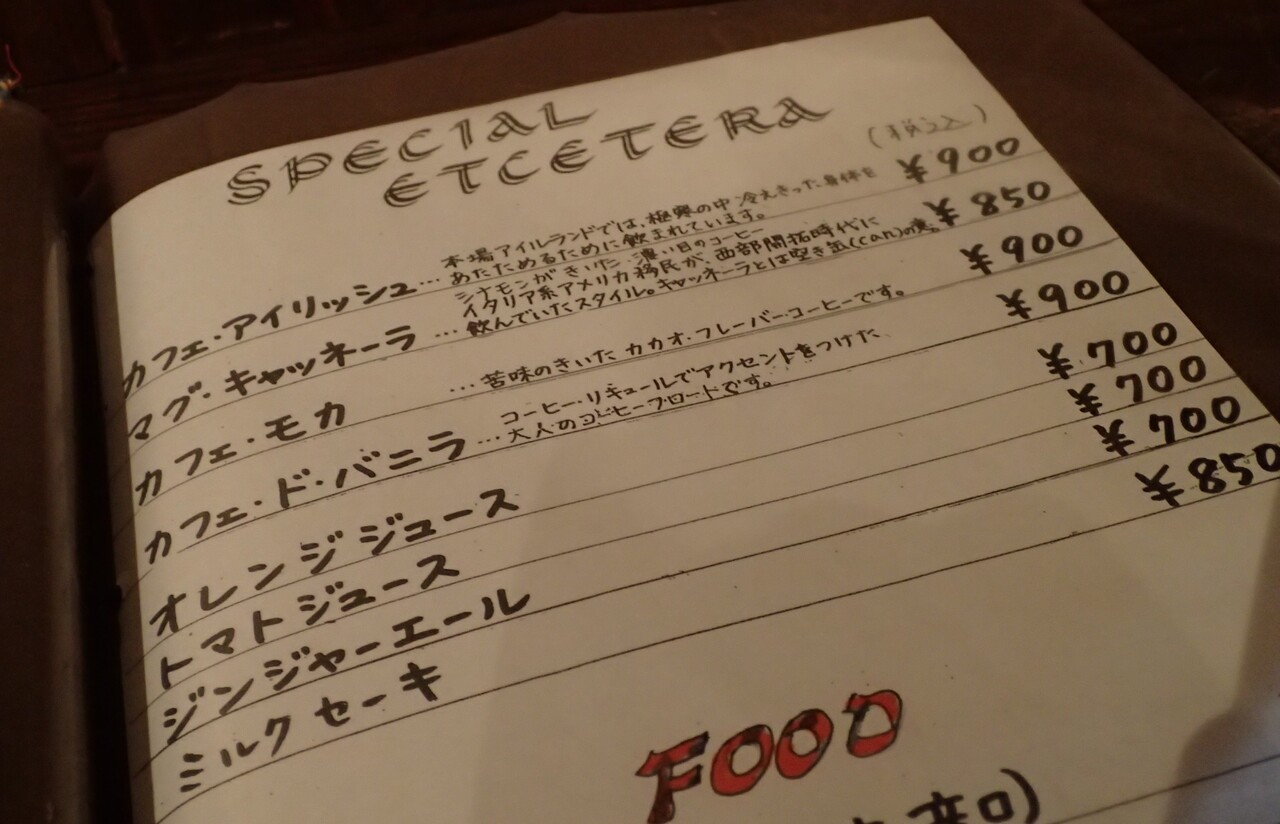 SPECIAL
ETCETERA
(税込)
カフェ・アイリッシュ… 本場アイルランドでは、極寒の中 冷えきった身体を ¥900
あたためるために飲まれています。
マグ・キャッネーラ … シナモンがきいた 濃い目のコーヒー ¥850
イタリア系アメリカ移民が、西部開拓時代に
飲んでいたスタイル。キャッネーラとは空き缶(can)の意。
カフェ・モカ … 苦味のきいた カカオ・フレーバー・コーヒーです。 ¥900
カフェ・ド・バニラ … コーヒー・リキュールでアクセントをつけた ¥900
大人のコーヒーフロートです。
オレンジジュース ¥700
トマトジュース ¥700
ジンジャーエール ¥700
ミルクセーキ ¥850
FOOD
辛口)